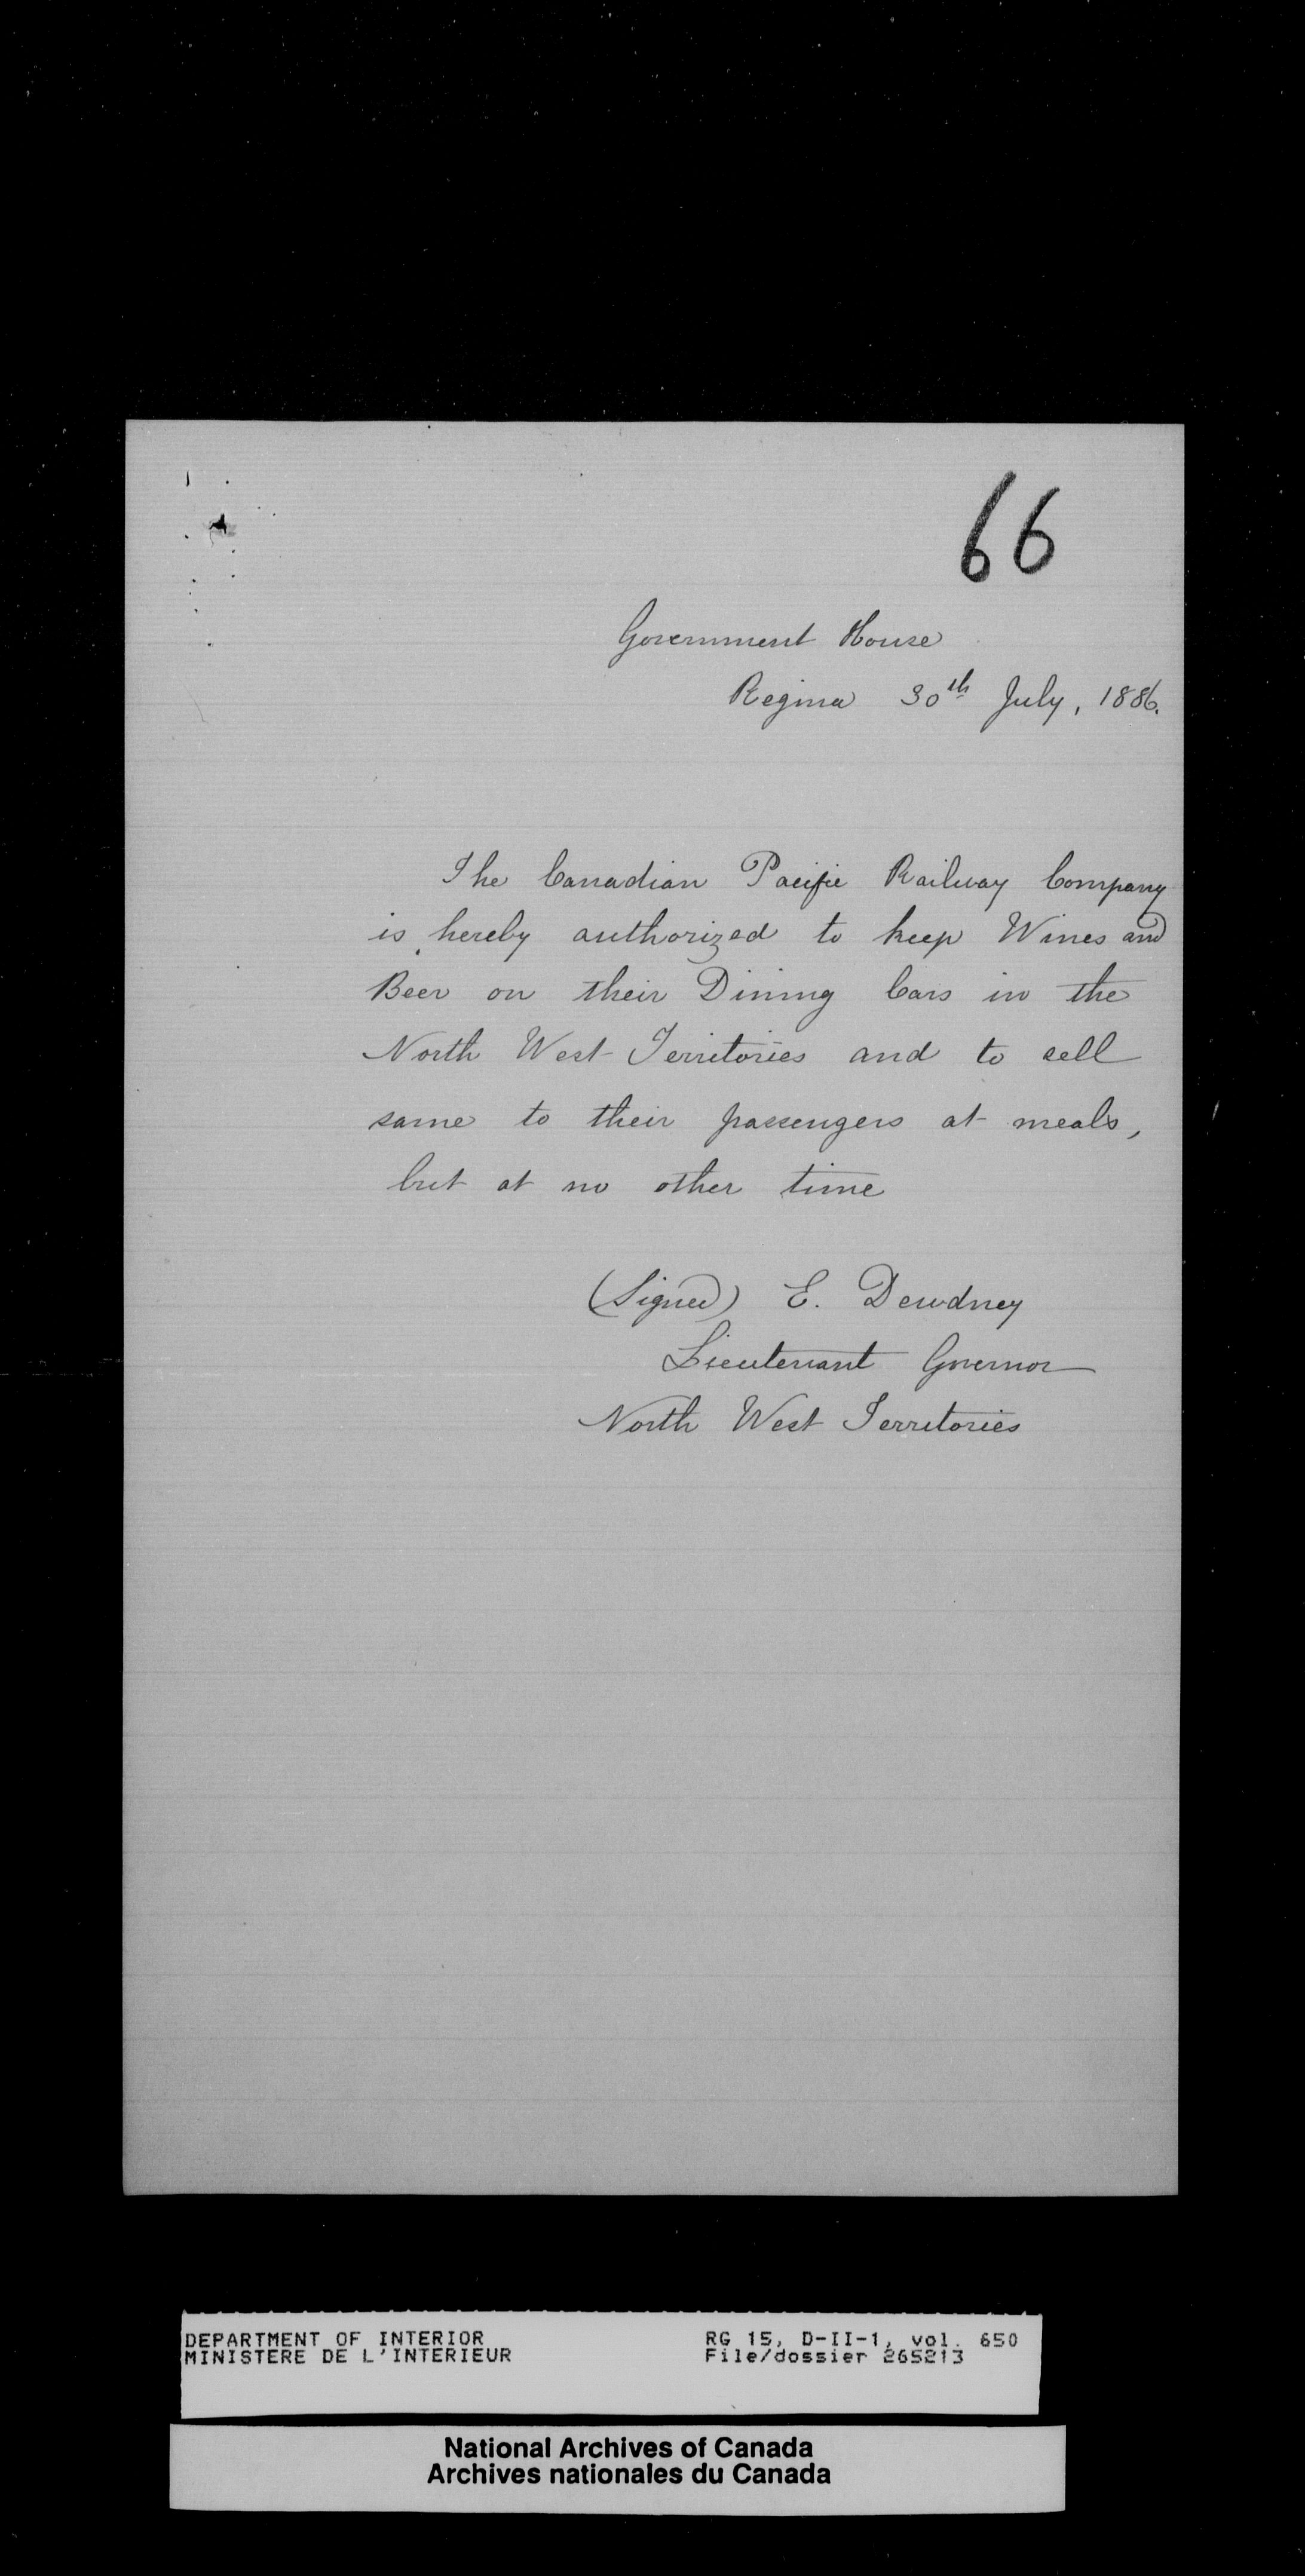 66
Government House
Regina 30th July, 1886.
The Canadian Pacific Railway Company
is hereby authorized to keep Wines and
Beer on their Dining Cars in the
North West Territories and to sell
same to their passengers at meals,
but at no other time
(Signed) E. Dewdney
Lieutenant Governor
North West Territories
DEPARTMENT OF INTERIOR RG 15, D-II-1, vol. 650
MINISTERE DE L'INTERIEUR File/dossier 265213
National Archives of Canada
Archives nationales du Canada